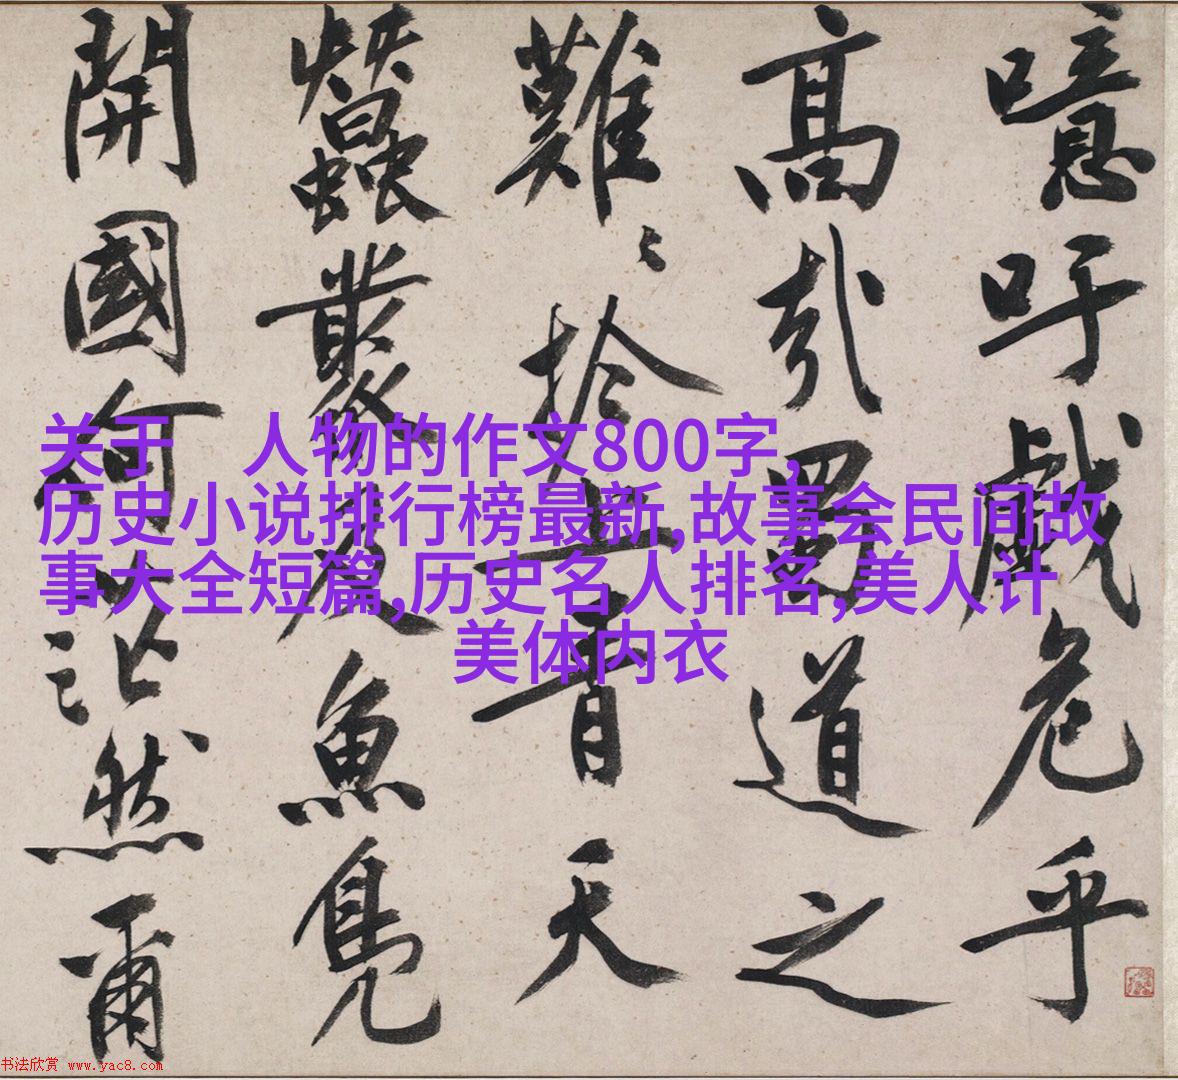 噫吁戲危乎
高哉蜀道之
難〻於上青天
蠶叢及魚鳧
開國何茫然爾
关于 人物的作文800字,
历史小说排行榜最新,故事会民间故
事大全短篇,历史名人排名,美人计
美体内衣
书法欣赏 www.yac8.com